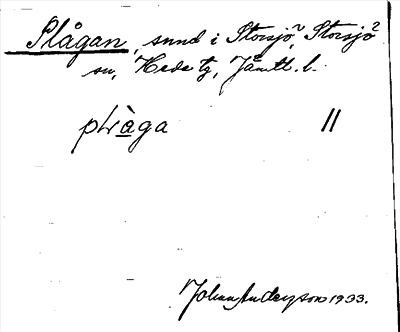 Plågan, sund i Storsjö?, Storsjö?
sn, Hede tg, Jämtl. l.
pɬàga ||
Johan Anderson 1933.